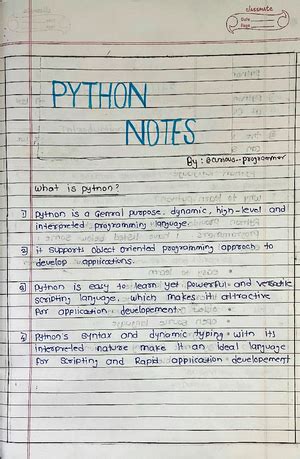 classmate
Date
Page
PYTHON
NOTES
By: @curious-programmer
What is python?
1) Python is a General purpose, dynamic, high-level and
interpreted programming language.
2) it supports object oriented programming approch to
develop applications.
3) Python is easy to learn yet powerful and versatile
scripting language, which makes it attractive
for application developement.
Python's syntax and dynamic typing with its
interpreted nature make it an ideal language
for scripting and Rapid application developement